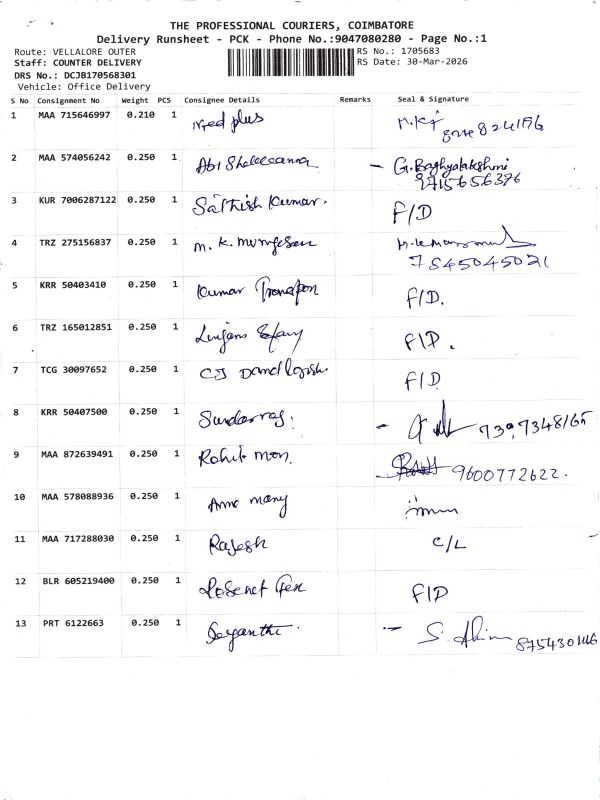 THE PROFESSIONAL COURIERS, COIMBATORE
Delivery Runsheet - PCK - Phone No.:9047080280 - Page No.:1
Route: VELLALORE OUTER
RS No.: 1705683
Staff: COUNTER DELIVERY
RS Date: 30-Mar-2026
DRS No.: DCJB170568301
Vehicle: Office Delivery
S No Consignment No Weight PCS Consignee Details Remarks Seal & Signature
1 MAA 715646997 0.210 1 Med plus
2 MAA 574056242 0.250 1 - G. Baghyalakshmi
9715656376
3 KUR 7006287122 0.250 1 Sathish Kumar. F/D
4 TRZ 275156837 0.250 1 M. K. Murugesan
7845045021
5 KRR 50403410 0.250 1 Kumar F/D.
6 TRZ 165012851 0.250 1 F/D.
7 TCG 30097652 0.250 1 CJ F/D
8 KRR 50407500 0.250 1 Sundarraj. - 7397348165
9 MAA 872639491 0.250 1 Rohit mon. - 9600772622.
10 MAA 578088936 0.250 1 Anne many
11 MAA 717288030 0.250 1 Rajesh C/L
12 BLR 605219400 0.250 1 F/D
13 PRT 6122663 0.250 1 Jeyanthi. - S.